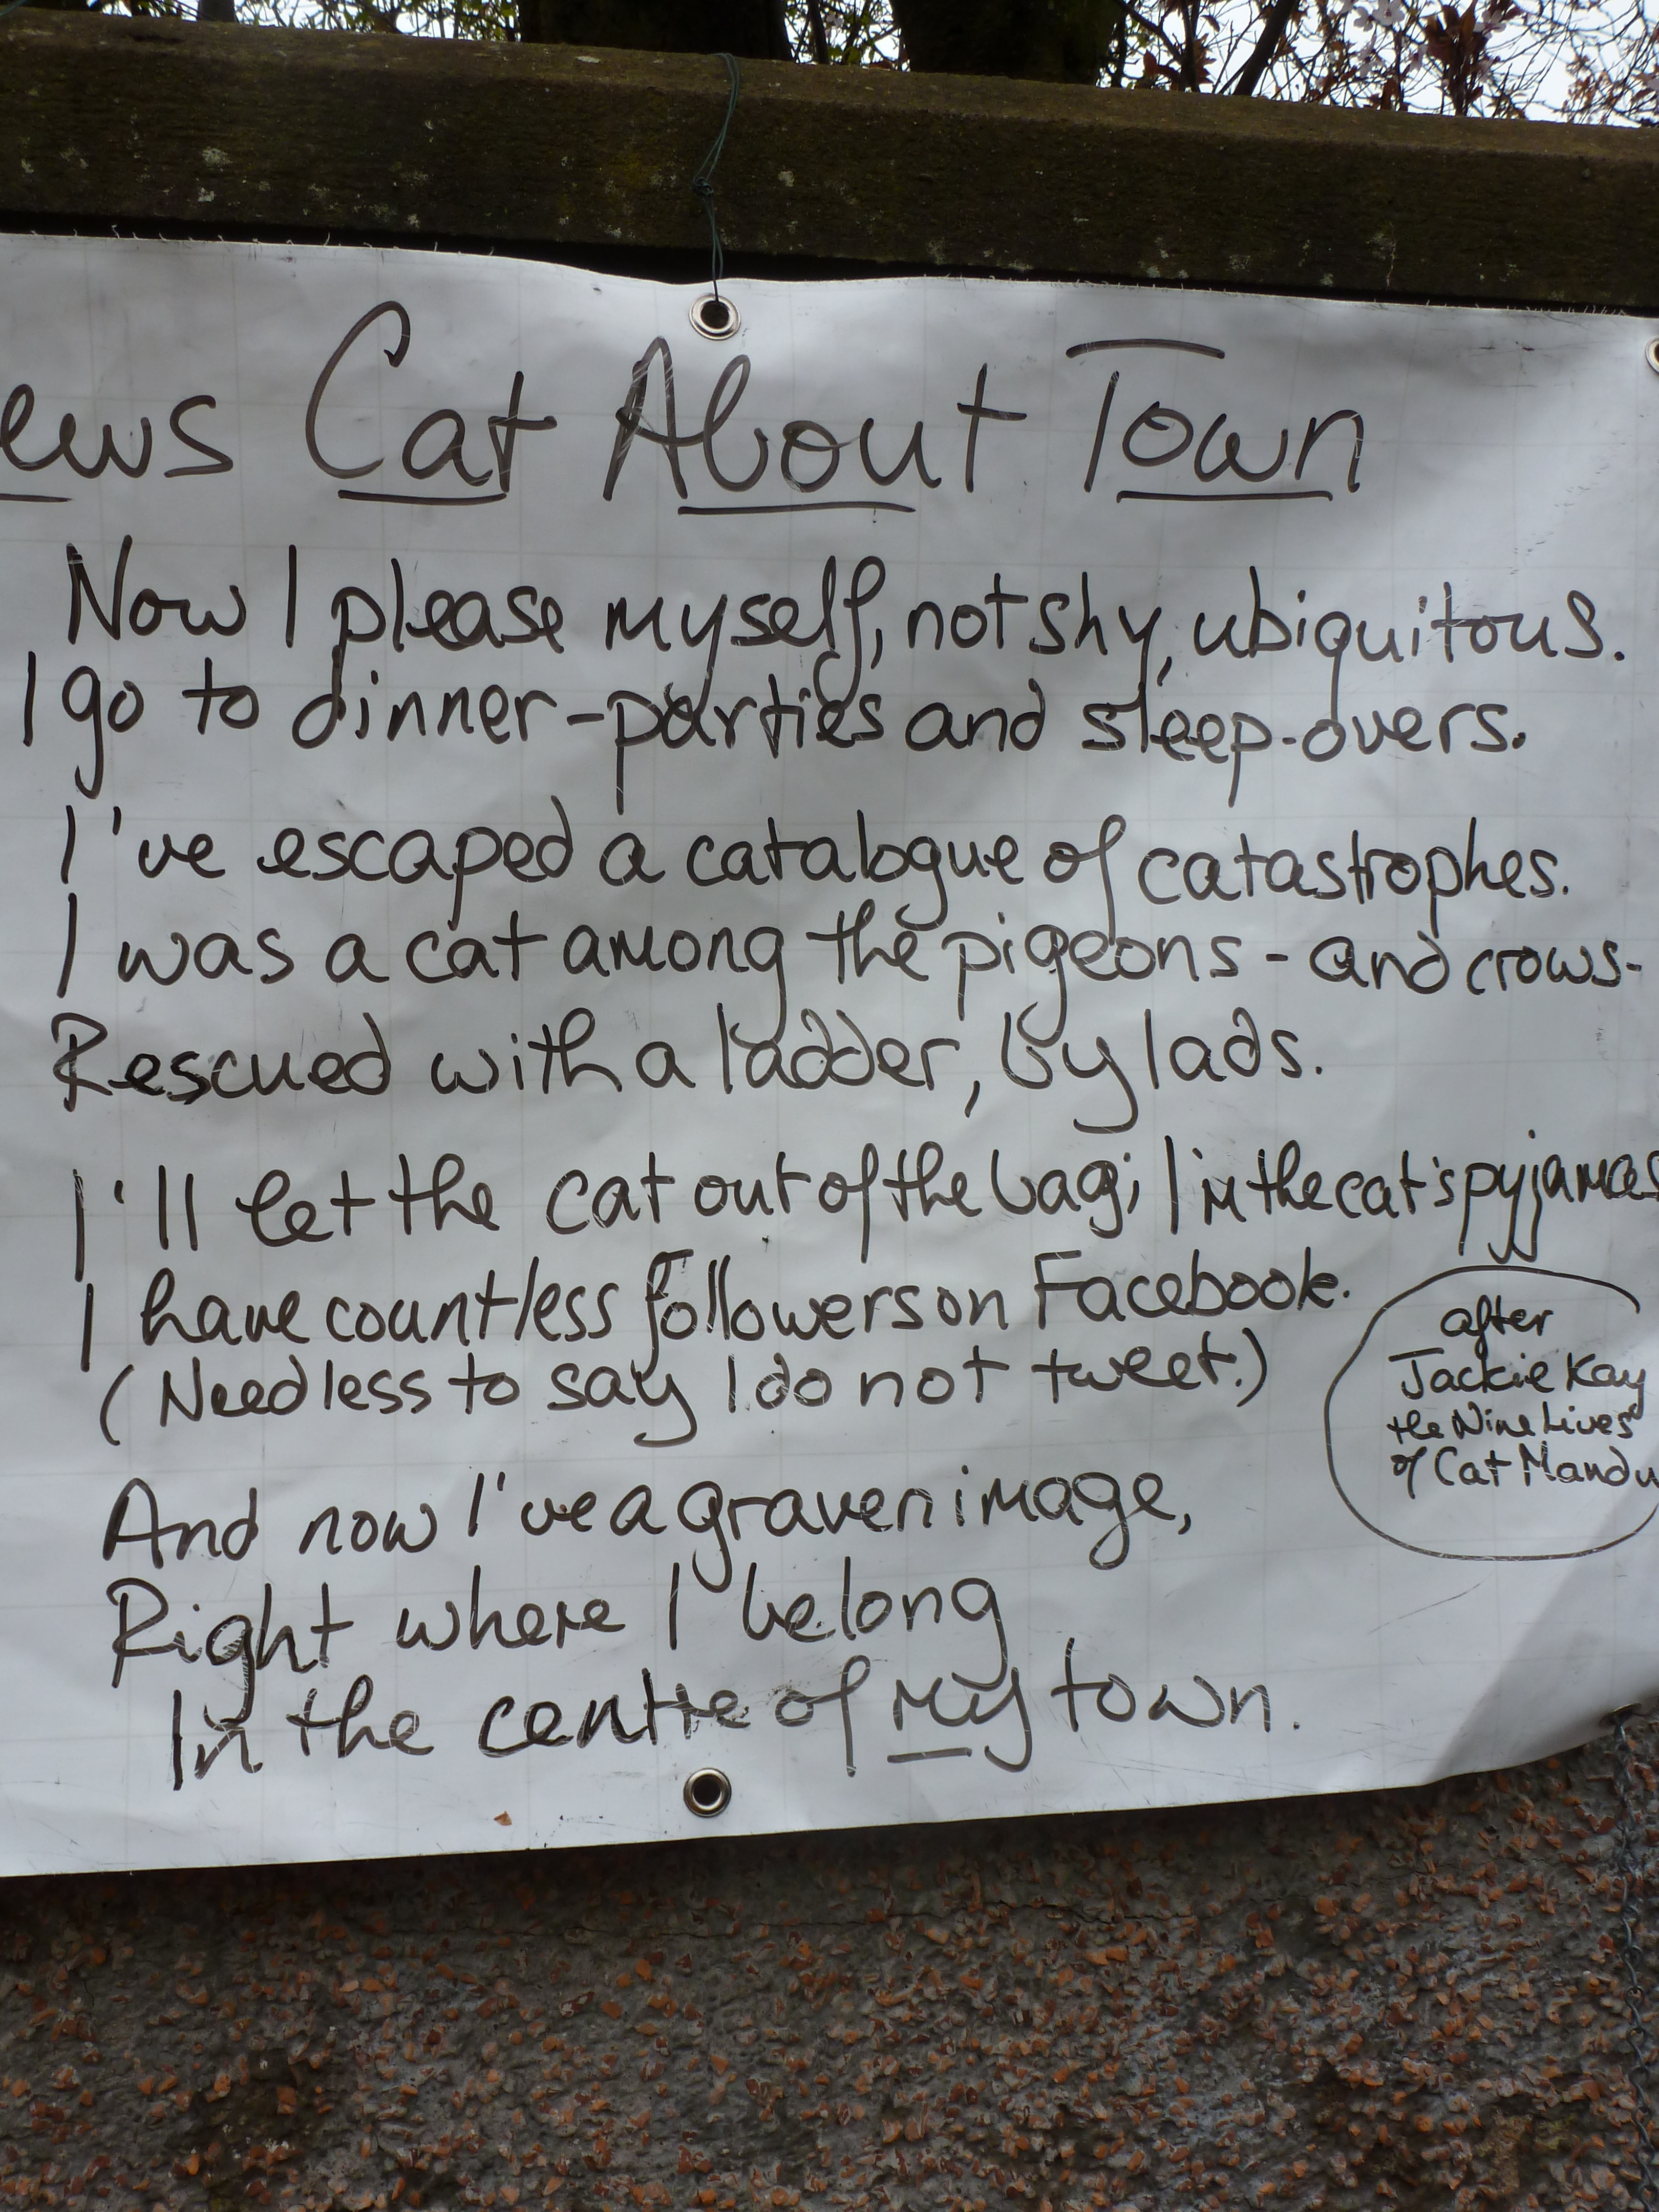 ews Cat About Town
Now I please myself, not shy, ubiquitous.
I go to dinner-parties and sleep-overs.
I've escaped a catalogue of catastrophes.
I was a cat among the pigeons - and crows-
Rescued with a ladder, by lads.
I'll let the cat out of the bag; I'm the cat's pyjamas
I have countless followers on Facebook.
(Needless to say I do not tweet.)
And now I've a graven image,
Right where I belong
In the centre of my town.
after
Jackie Kay
the Nine Lives
of Cat Mandu